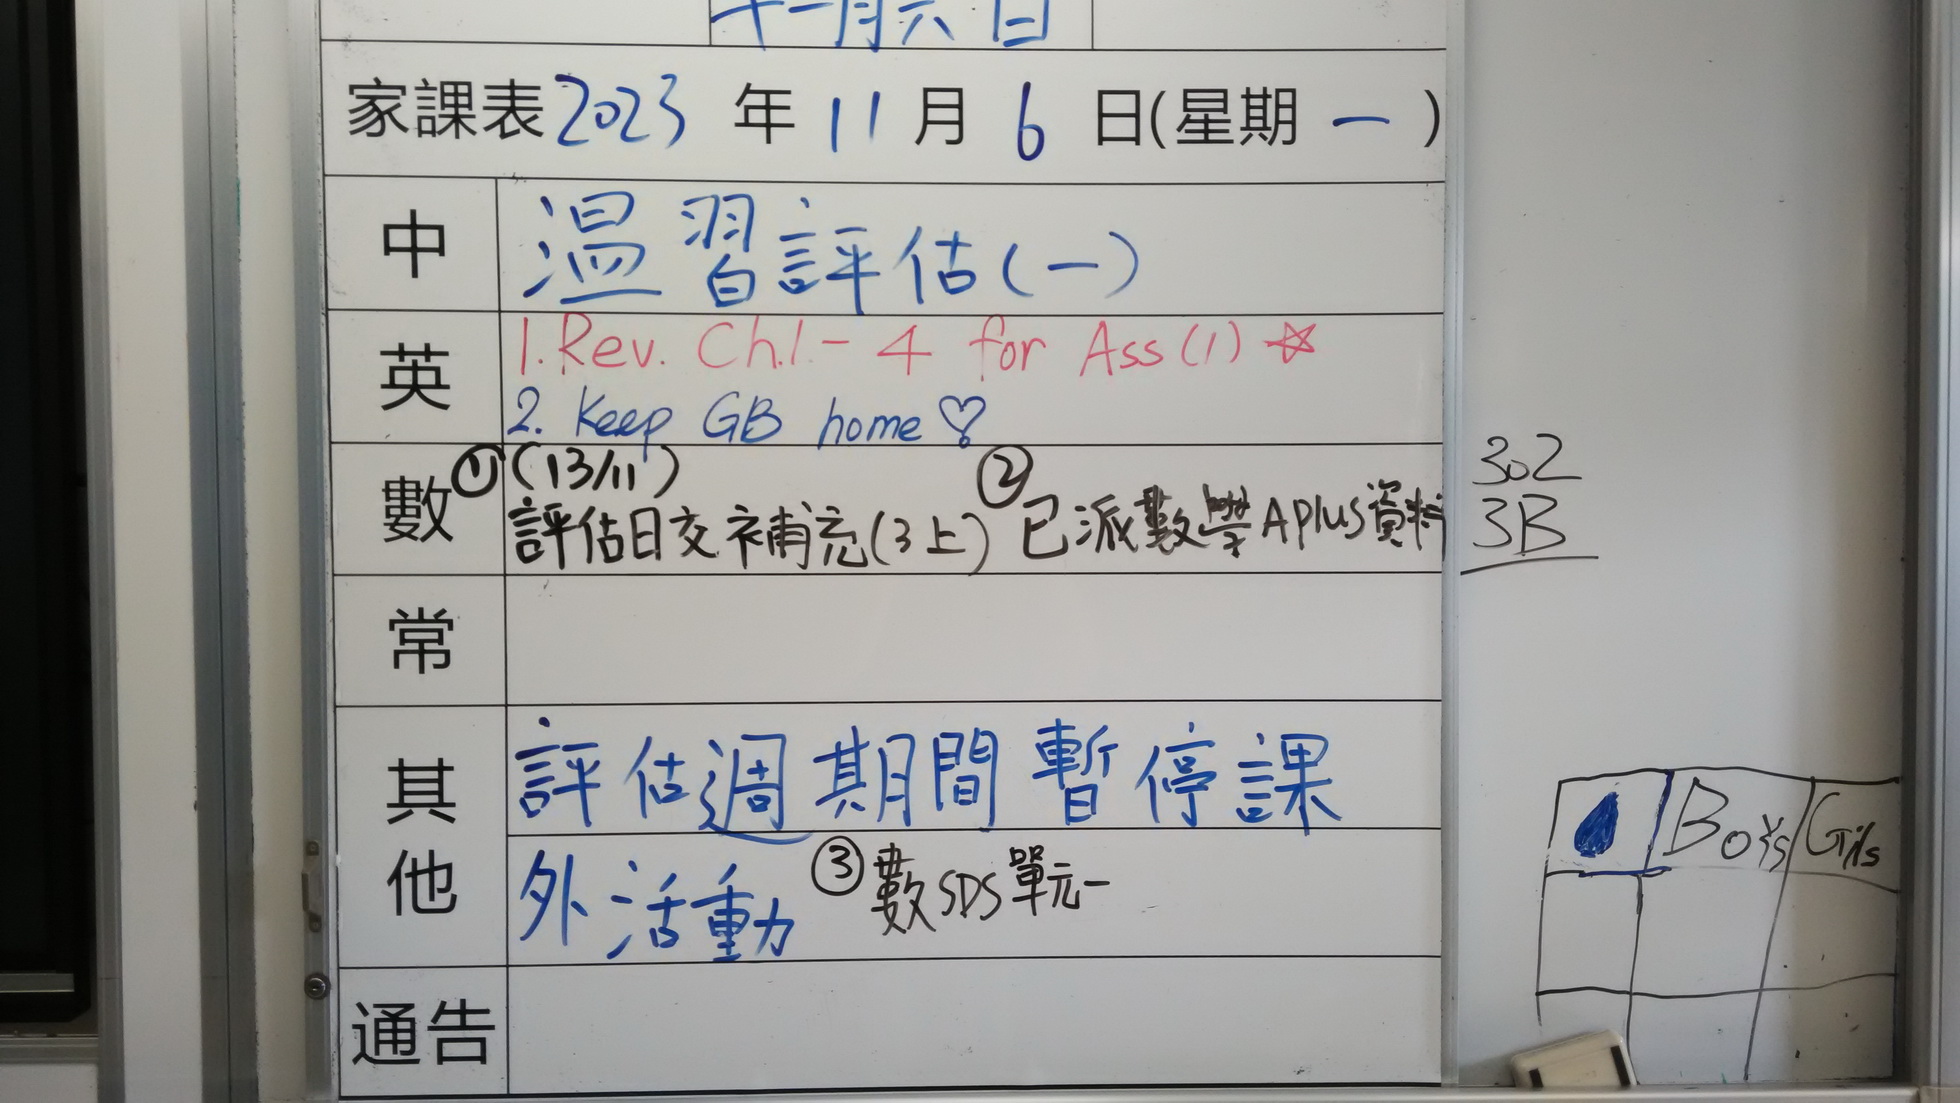 十一月六日
家課表2023年11月6日(星期一)
中
溫習評估(一)
英
1. Rev. Ch.1 - 4 for Ass (1) ☆
2. Keep GB home ♡
數
① (13/11)
評估日交補充(3上)
② 已派數學Aplus資料
302
3B
常
其他
評估週期間暫停課
外活動
③ 數SDS單元一
通告
Boys
Girls